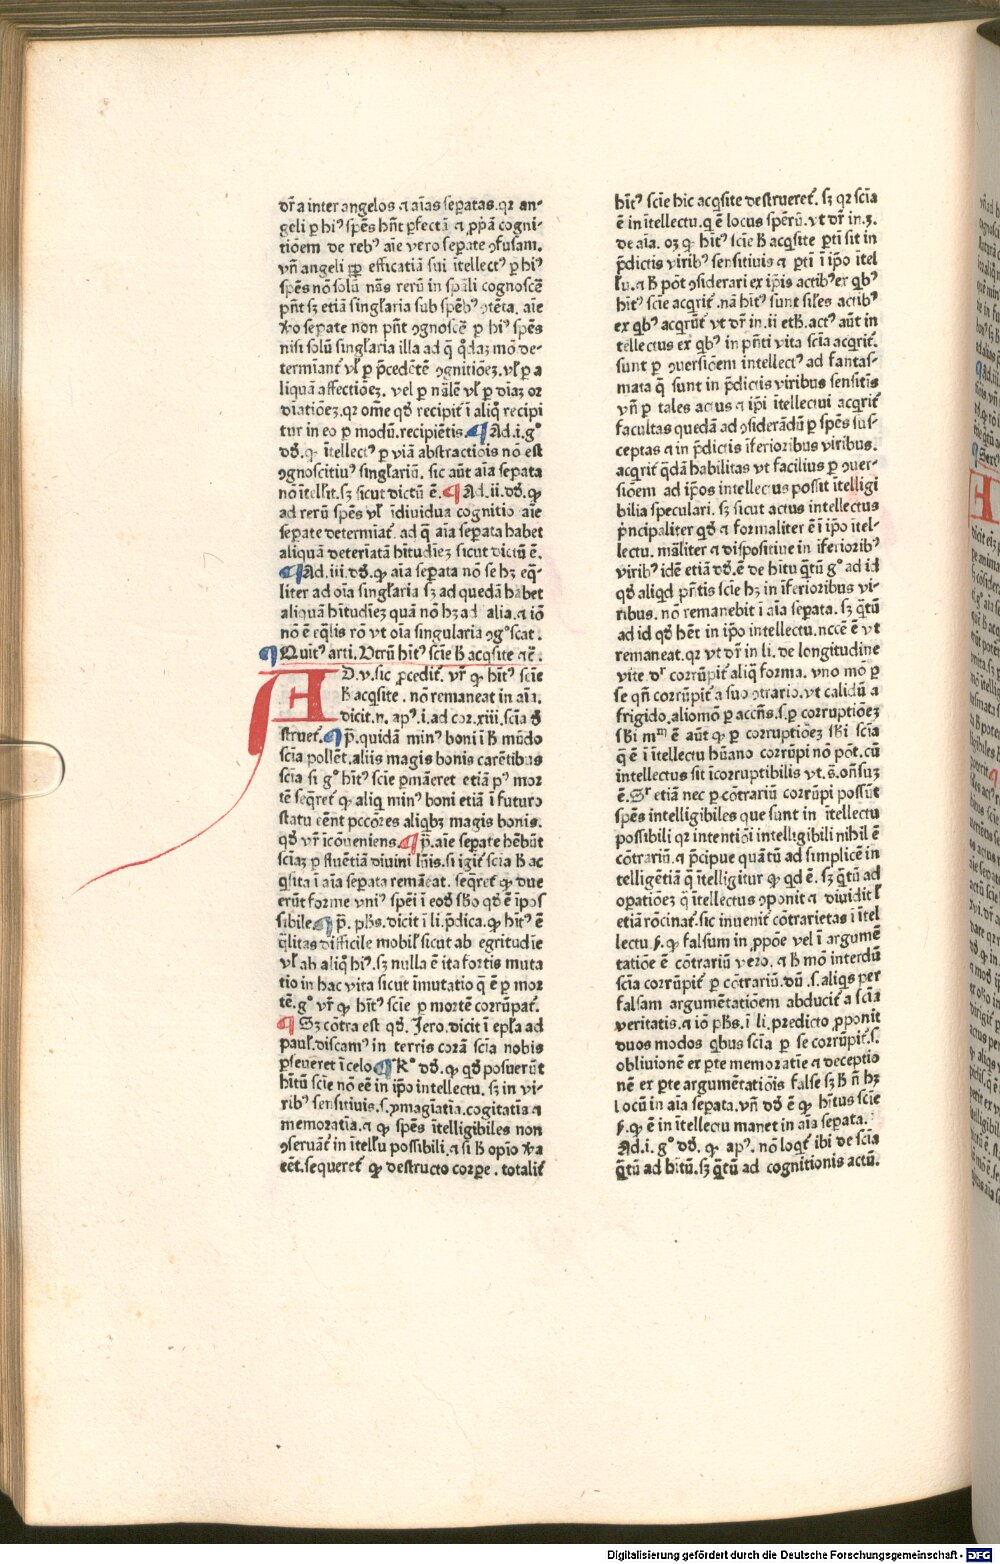 dr̄a inter angelos ⁊ aīas seꝑatas. qꝛ an-
geli ꝑ hi᷒ spēs hn̄t ꝑfectā ⁊ ꝓpā cogni-
tiōem de reb᷒ aīe vero seꝑate ꝯfusam.
vn̄ angeli ꝓp efficatiā sui ītellect᷒ ꝑ hi᷒
spēs nō solū nās rerū in spāli cognoscē
pn̄t sꝫ etiā singl̄aria sub spēb᷒ ꝯtēta. aīe
ꝟo seꝑate non pn̄t ꝯgnoscē ꝑ hi᷒ spēs
nisi solū singl̄aria illa ad q̄ q̄daꝫ mō de-
terminant᷑ vl̄ ꝑ p̄cedētē ꝯgnitiōeꝫ. vl̄ ꝑ a
liquā affectiōeꝫ. vel ꝑ nālē vl̄ ꝑ dīaꝫ oꝛ
diatiōeꝫ. qꝛ om̄e qd̄ recipit᷑ ī aliq̄ recipi
tur in eo ꝑ modū. recipiētis. ¶ Ad. i. g°
dd̄. ꝙ ītellect᷒ ꝑ viā abstractiōis nō est
ꝯgnoscitiu᷒ singl̄ariū. sic aūt aīa seꝑata
nō ītell̄it. sꝫ sicut dictū ē. ¶ Ad. ii. dd̄. ꝙ
ad rerū spēs vl̄ īdiuidua cognitio aīe
seꝑate determiat᷑. ad q̄ aīa seꝑata habet
aliquā deteriatā hītudīeꝫ sicut dictū ē.
¶ Ad. iii. dd̄. ꝙ aīa seꝑata nō se hꝫ eq̄-
liter ad oīa singl̄aria sꝫ ad quedā habet
aliquā hītudīeꝫ quā nō hꝫ ad alia. ⁊ iō
nō ē eq̄lis rō vt oīa singularia ꝯg°scat.
¶ Quīt᷒ arti. Vtrū hīt᷒ scīe ħ acq̄site ⁊c̄.
AD. v. sic ꝓcedit᷑. vr̄ ꝙ hīt᷒ scīe
ħ acq̄site. nō remaneat in aīa.
dicit. n. ap᷒. i. ad coꝛ. xiii. scīa d̄
struet᷑. ¶ p̄. quidā min᷒ boni ī ħ mūdo
scīa pollēt. aliis magis bonis carētibus
scīa si g° hīt᷒ scīe ꝑmāeret etiā p᷒ moꝛ
tē seq̄ret᷑ ꝙ aliq̄ min᷒ boni etiā ī futuro
statu eēnt pccōres aliqbꝫ magis bonis.
qd̄ vr̄ īcōueniens. ¶ p̄. aīe seꝑate hēbūt
scīaꝫ ꝑ fluētiā diuini lm̄is. si igit᷑ scīa ħ ac
q̄sita ī aīa seꝑata remāeat. seq̄ret᷑ ꝙ due
erūt forme vni᷒ spēi ī eod̄ sb̄o qd̄ ē īpos
sibile. ¶ p̄. ph̄s. dicit ī li. p̄dica. ꝙ hīt᷒ ē
q̄litas difficile mobil̄ sicut ab egritudīe
vl̄ ab aliq̄ hi᷒. sꝫ nulla ē ita fortis muta
tio in hac vita sicut īmutatio q̄ ē ꝑ moꝛ
tē. g° vr̄ ꝙ hīt᷒ scīe ꝑ mortē corrūpat᷑.
¶ Sꝫ cōtra est qd̄. Jero. dicit ī epl̄a ad
paul̄. discam᷒ in terris corā scīa nobis
ꝑseueret ī celo. ¶ R° dd̄. ꝙ qd̄ posuerūt
hītū scīe nō eē in ip̄o intellectu. sꝫ in vi-
rib᷒ sensitiuis. s. ymagīatīa. cogitatīa ⁊
memoratīa. ⁊ ꝙ spēs ītelligibiles non
ꝯseruāt᷑ in ītell̄u possibili. ⁊ si ħ opīo ꝟa
eēt. sequeret᷑ ꝙ destructo corꝑe. totalit᷑
hīt᷒ scīe hic acq̄site destrueret᷑. sꝫ qꝛ scīa
ē in ītellectu. q̄ ē locus spērū. vt dr̄ in. 3.
de aīa. oꝫ ꝙ hīt᷒ scīe ħ acq̄site ꝑti sit in
p̄dictis virib᷒ sensitiuis ⁊ ꝑti ī ip̄o ītel
l̄u. ⁊ ħ pōt ꝯsiderari ex ip̄is actib᷒ ex qb᷒
hīt᷒ scīe acqrit᷑. nā hīt᷒ sunt sil̄es actib᷒
ex qb᷒ acqrūt᷑ vt dr̄ in. ii eth̄. act᷒ aūt in
tellectus ex qb᷒ in p̄nti vita scīa acqrit᷑.
sunt ꝑ ꝯuersiōem intellect᷒ ad fantas-
mata q̄ sunt in p̄dictis viribus sensitīs
vn̄ ꝑ tales actus ⁊ ip̄i ītellectui acqrit᷑
facultas quedā ad ꝯsiderādū ꝑ spēs sus-
ceptas ⁊ in p̄dictis īferioribus viribus.
acqrit᷑ q̄dā habilitas vt facilius ꝑ ꝯuer-
siōem ad ip̄os intellectus possit ītelligi
bilia speculari. sꝫ sicut actus intellectus
p̄ncipaliter qd̄ ⁊ formaliter ē ī ip̄o ītel-
lectu. māliter ⁊ dispositiue in īferiorib᷒
virib᷒ idē etiā dd̄. ē de hītu q̄tū g° ad id
qd̄ aliqd p̄ntis scīe hꝫ in īferioribus vi-
ribus. nō remanebit ī aīa seꝑata. sꝫ q̄tū
ad id qd̄ hēt in ip̄o intellectu. nccē ē vt
remaneat. qꝛ vt dr̄ in li. de longitudine
vite. dr̄ corrūpit᷑ aliq̄ forma. vno mō ꝑ
se qn̄ corrūpit᷑ a suo ꝯtrario. vt calidū a
frigido. alio mō ꝑ accn̄s. s. ꝑ corruptiōeꝫ
sb̄i mᵐ ē aūt ꝙ ꝑ corruptiōeꝫ sb̄i scīa
q̄ ē ī ītellectu hūano corrūpi nō pōt. cū
intellectus sit īcorruptibilis vt. s̄. on̄suꝫ
ē. Sr̄ etiā nec ꝑ cōtrariū corrūpi possūt
spēs intelligibiles que sunt in ītellectu
possibili qꝛ intentiōi intelligibili nihil ē
cōtrariū. ⁊ p̄cipue quātū ad simplicē in
telligētiā q̄ ītelligitur ꝙ qd ē. sꝫ q̄tū ad
oꝑatiōeꝫ q̄ ītellectus ꝯponit ⁊ diuidit l̄
etiā rōcinat᷑. sic inuenit᷑ cōtrarietas ī ītel
lectu ẜ. ꝙ falsum in ꝓpōe vel ī argumē
tatiōe ē cōtrariū vero. ⁊ ħ mō interdū
scīa corrūpit᷑ ꝑ cōtrariū. dū. s. aliqs per
falsam argumētatiōem abducit᷑ a scīa
veritatis. ⁊ iō ph̄s. ī li. predicto ꝓponit
duos modos qbus scīa ꝑ se corrūpit᷑. s.
obliuionē ex ꝑte memoratīe ⁊ deceptio
nē ex ꝑte argumētatiōis false sꝫ ħ n̄ hꝫ
locū in aīa seꝑata. vn̄ dd̄ ē ꝙ hītus scīe
ẜ. ꝙ ē in ītellectu manet in aīa seꝑata.
Ad. i. g° dd̄. ꝙ ap᷒. nō loqt᷑ ibi de scīa
q̄tū ad hītū. sꝫ q̄tū ad cognitionis actū.
Digitalisierung gefördert durch die Deutsche Forschungsgemeinschaft - DFG